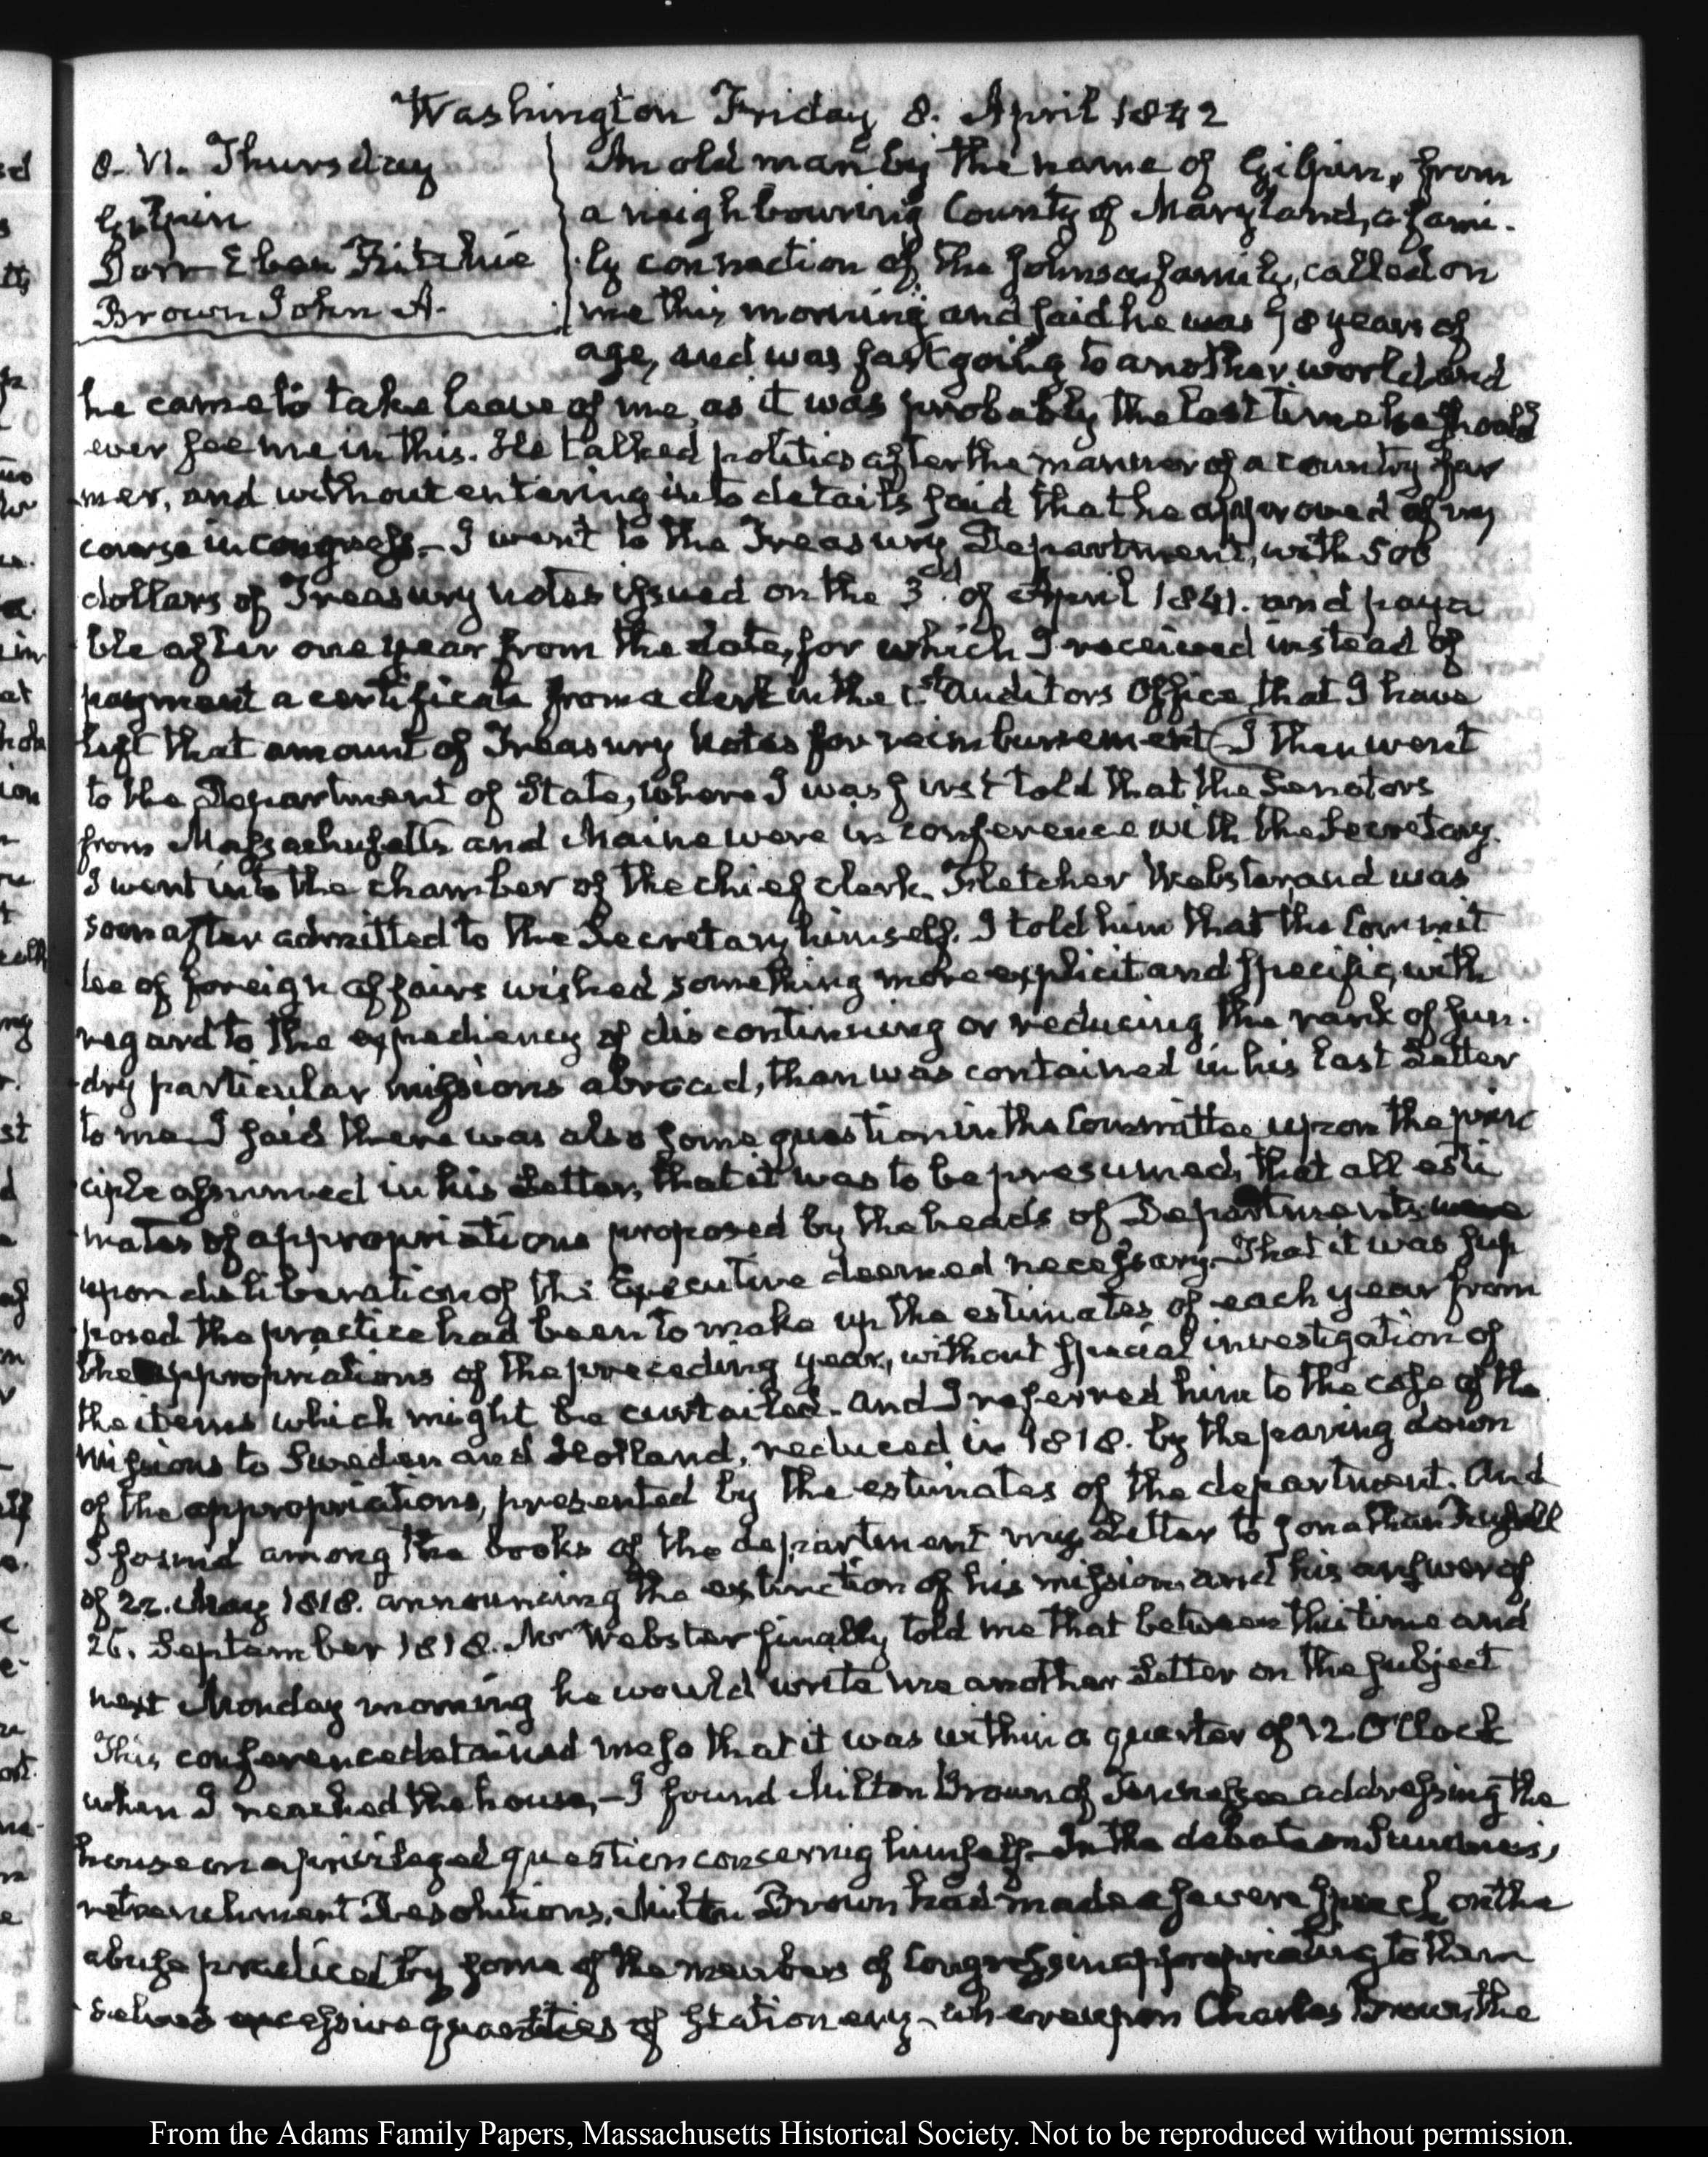 Washington Friday 8. April 1842
8. VI. Thursday
Gilpin
Dorr Eben Ritchie
Brown John A.
An old man by the name of Gilpin, from
a neighbouring County of Maryland, a fami-
ly connection of the Johnson family, called on
me this morning and said he was 78 years of
age, and was fast going to another world and
he came to take leave of me, as it was probably the last time he should
ever see me in this. He talked politics after the manner of a country far
mer, and without entering into details said that he approved of my
course in congress.- I went to the Treasury Department, with 500
dollars of Treasury notes issued on the 3d. of April 1841. and paya
ble after one year from the date, for which I received instead of
payment a certificate from a clerk in the 1.st Auditors Office that I have
left that amount of Treasury Notes for reimbursement (I then went
to the Department of State, where I was first told that the Senators
from Massachusetts and Maine were in conference with the Secretary.
I went into the chamber of the chief clerk Fletcher Webster, and was
soon after admitted to the Secretary himself. I told him that the Commit
tee of foreign affairs wished something more explicit and specific, with
regard to the expediency of discontinuing or reducing the rank of sun-
dry particular missions abroad, than was contained in his last Letter
to me. I said there was also some question in the Committee upon the prin
ciple assumed in his Letter, that it was to be presumed, that all esti
mates of appropriations proposed by the heads of Departments were
upon deliberation of the Executive deemed necessary. That it was sup
posed the practice had been to make up the estimates of each year from
the appropriations of the preceding year, without special investigation of
the items which might be curtailed. and I referred him to the case of the
missions to Sweden and Holland, reduced in 1818. by the paring down
of the appropriations, presented by the estimates of the department. And
I found among the books of the department my Letter to Jonathan Russell
of 22. May 1818. announcing the extinction of his mission and his answer of
26. September 1818. Mr Webster finally told me that between this time and
next Monday morning he would write me another Letter on the subject
This conference detained me so that it was within a quarter of 12. O'Clock
when I reached the house,- I found Milton Brown of Tennessee addressing the
house on a privileged question concernig himself. In the debate on Summers's
retrenchment Resolutions, Milton Brown had made a severe speech on the
abuse practiced by some of the members of Congress in appropriating to them
selves excessive quantities of stationery. whereupon Charles Brown, the
From the Adams Family Papers, Massachusetts Historical Society. Not to be reproduced without permission.